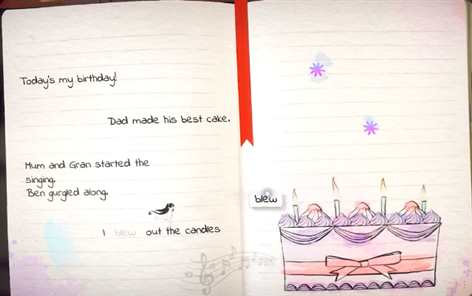 Today's my birthday!
Dad made his best cake.
Mum and Gran started the
singing.
Ben gurgled along.
I blew out the candles
blew